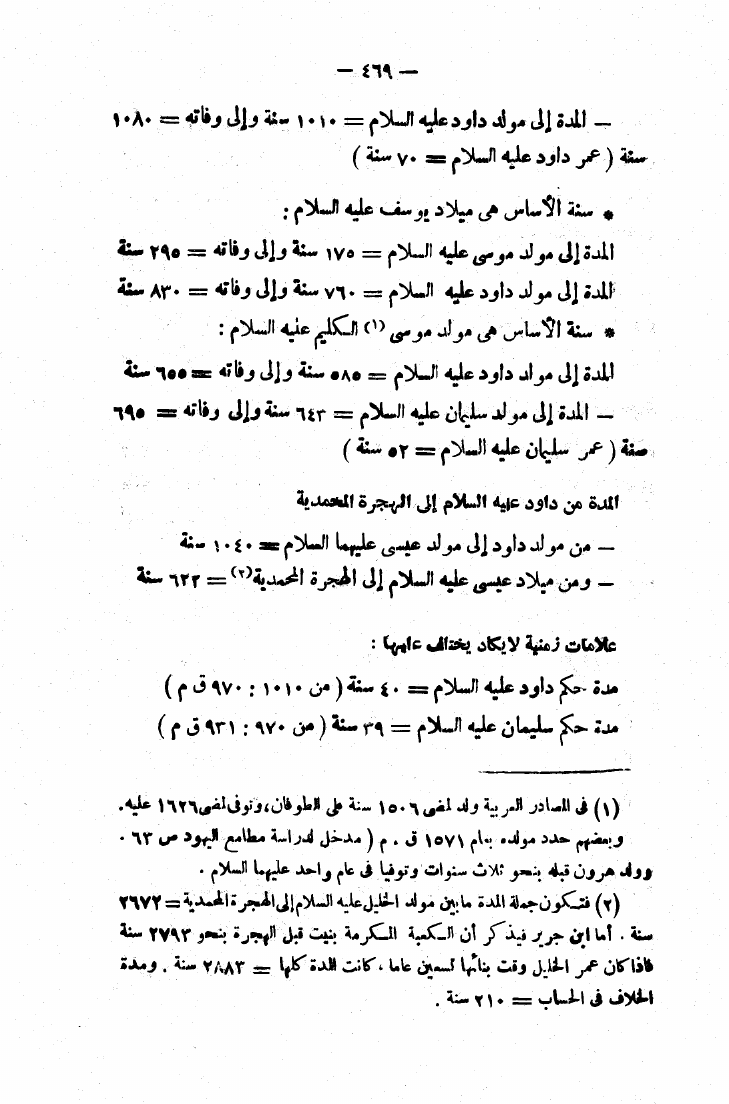 — ٤٦٩ —
— المدة إلى مولد داود عليه السلام = ١٠١٠ سنة وإلى وفاته = ١٠٨٠
سنة ( عمر داود عليه السلام = ٧٠ سنة )
* سنة الأساس هى ميلاد يوسف عليه السلام :
المدة إلى مولد موسى عليه السلام = ١٧٥ سنة وإلى وفاته = ٢٩٥ سنة
المدة إلى مولد داود عليه السلام = ٧٦٠ سنة وإلى وفاته = ٨٣٠ سنة
* سنة الأساس هى مولد موسى (١) الكليم عليه السلام :
المدة إلى مولد داود عليه السلام = ٥٨٥ سنة وإلى وفاته = ٦٥٥ سنة
— المدة إلى مولد سليمان عليه السلام = ٦٤٣ سنة وإلى وفاته = ٦٩٥
سنة ( عمر سليمان عليه السلام = ٥٢ سنة )
المدة من داود عليه السلام إلى الهجرة المحمدية
— من مولد داود إلى مولد عيسى عليهما السلام = ١٠٤٠ سنة
— ومن ميلاد عيسى عليه السلام إلى الهجرة المحمدية (٢) = ٦٢٢ سنة
علامات زمنية لا يكاد يختلف عليها :
مدة حكم داود عليه السلام = ٤٠ سنة ( من ١٠١٠ : ٩٧٠ ق م )
مدة حكم سليمان عليه السلام = ٣٩ سنة ( من ٩٧٠ : ٩٣١ ق م )
(١) فى المصادر العربية ولد لمضى ١٥٠٦ سنة على الطوفان، وتوفى لمضى ١٦٢٦ عليه.
وبعضهم حدد مولده بعام ١٥٧١ ق . م ( مدخل لدراسة مطامع اليهود ص ٦٣ .
وولد هرون قبله بنحو ثلاث سنوات وتوفيا فى عام واحد عليهما السلام .
(٢) فتكون جملة المدة ما بين مولد الخليل عليه السلام إلى الهجرة المحمدية = ٢٦٧٢
سنة . أما ابن جرير فيذكر أن الكعبة المكرمة بنيت قبل الهجرة بنحو ٢٧٩٣ سنة
فاذا كان عمر الخليل وقت بنائها تسعين عاما ، كانت المدة كلها = ٢٨٨٣ سنة . ومدة
الخلاف فى الحساب = ٢١٠ سنة .